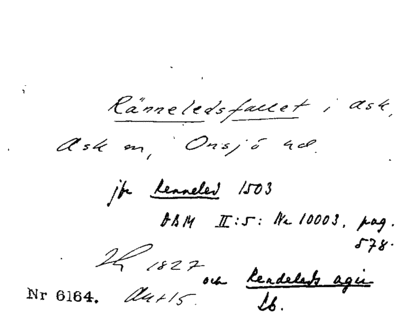 Ränneledsfallet i Ask,
Ask sn, Onsjö hd.
jfr Renneled 1503
DBM II:5: Nr 10003, pag.
578.
1827
och Rendeleds agir
ib.
Nr 6164.